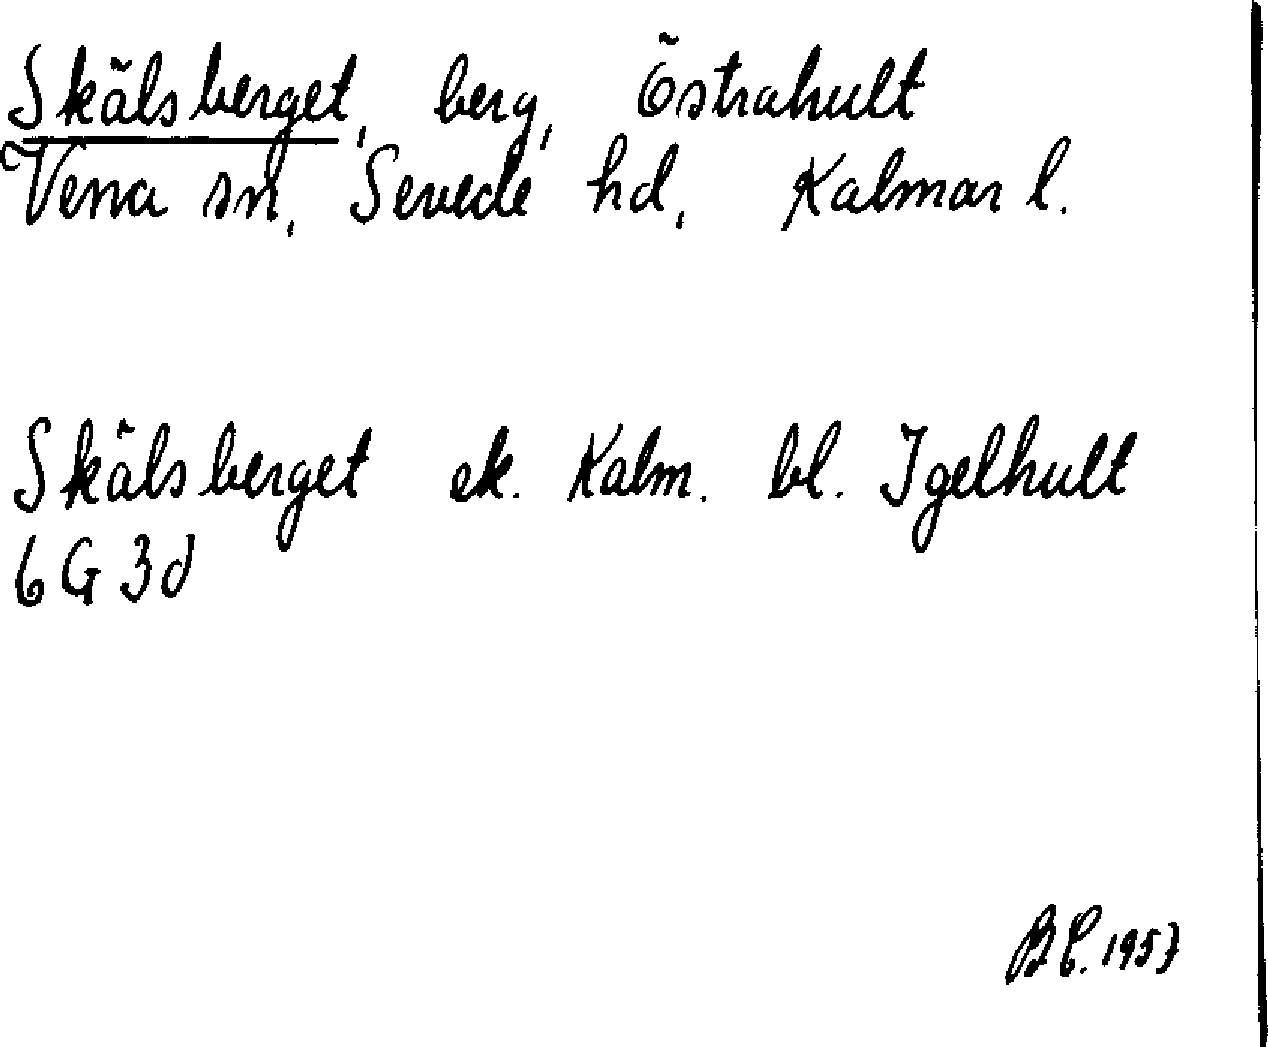 Skälsberget, berg, Östrahult
Vena sn, Sevede hd, Kalmar l.
Skälsberget ek. Kalm. bl. Igelhult
6G3d
BE. 1957